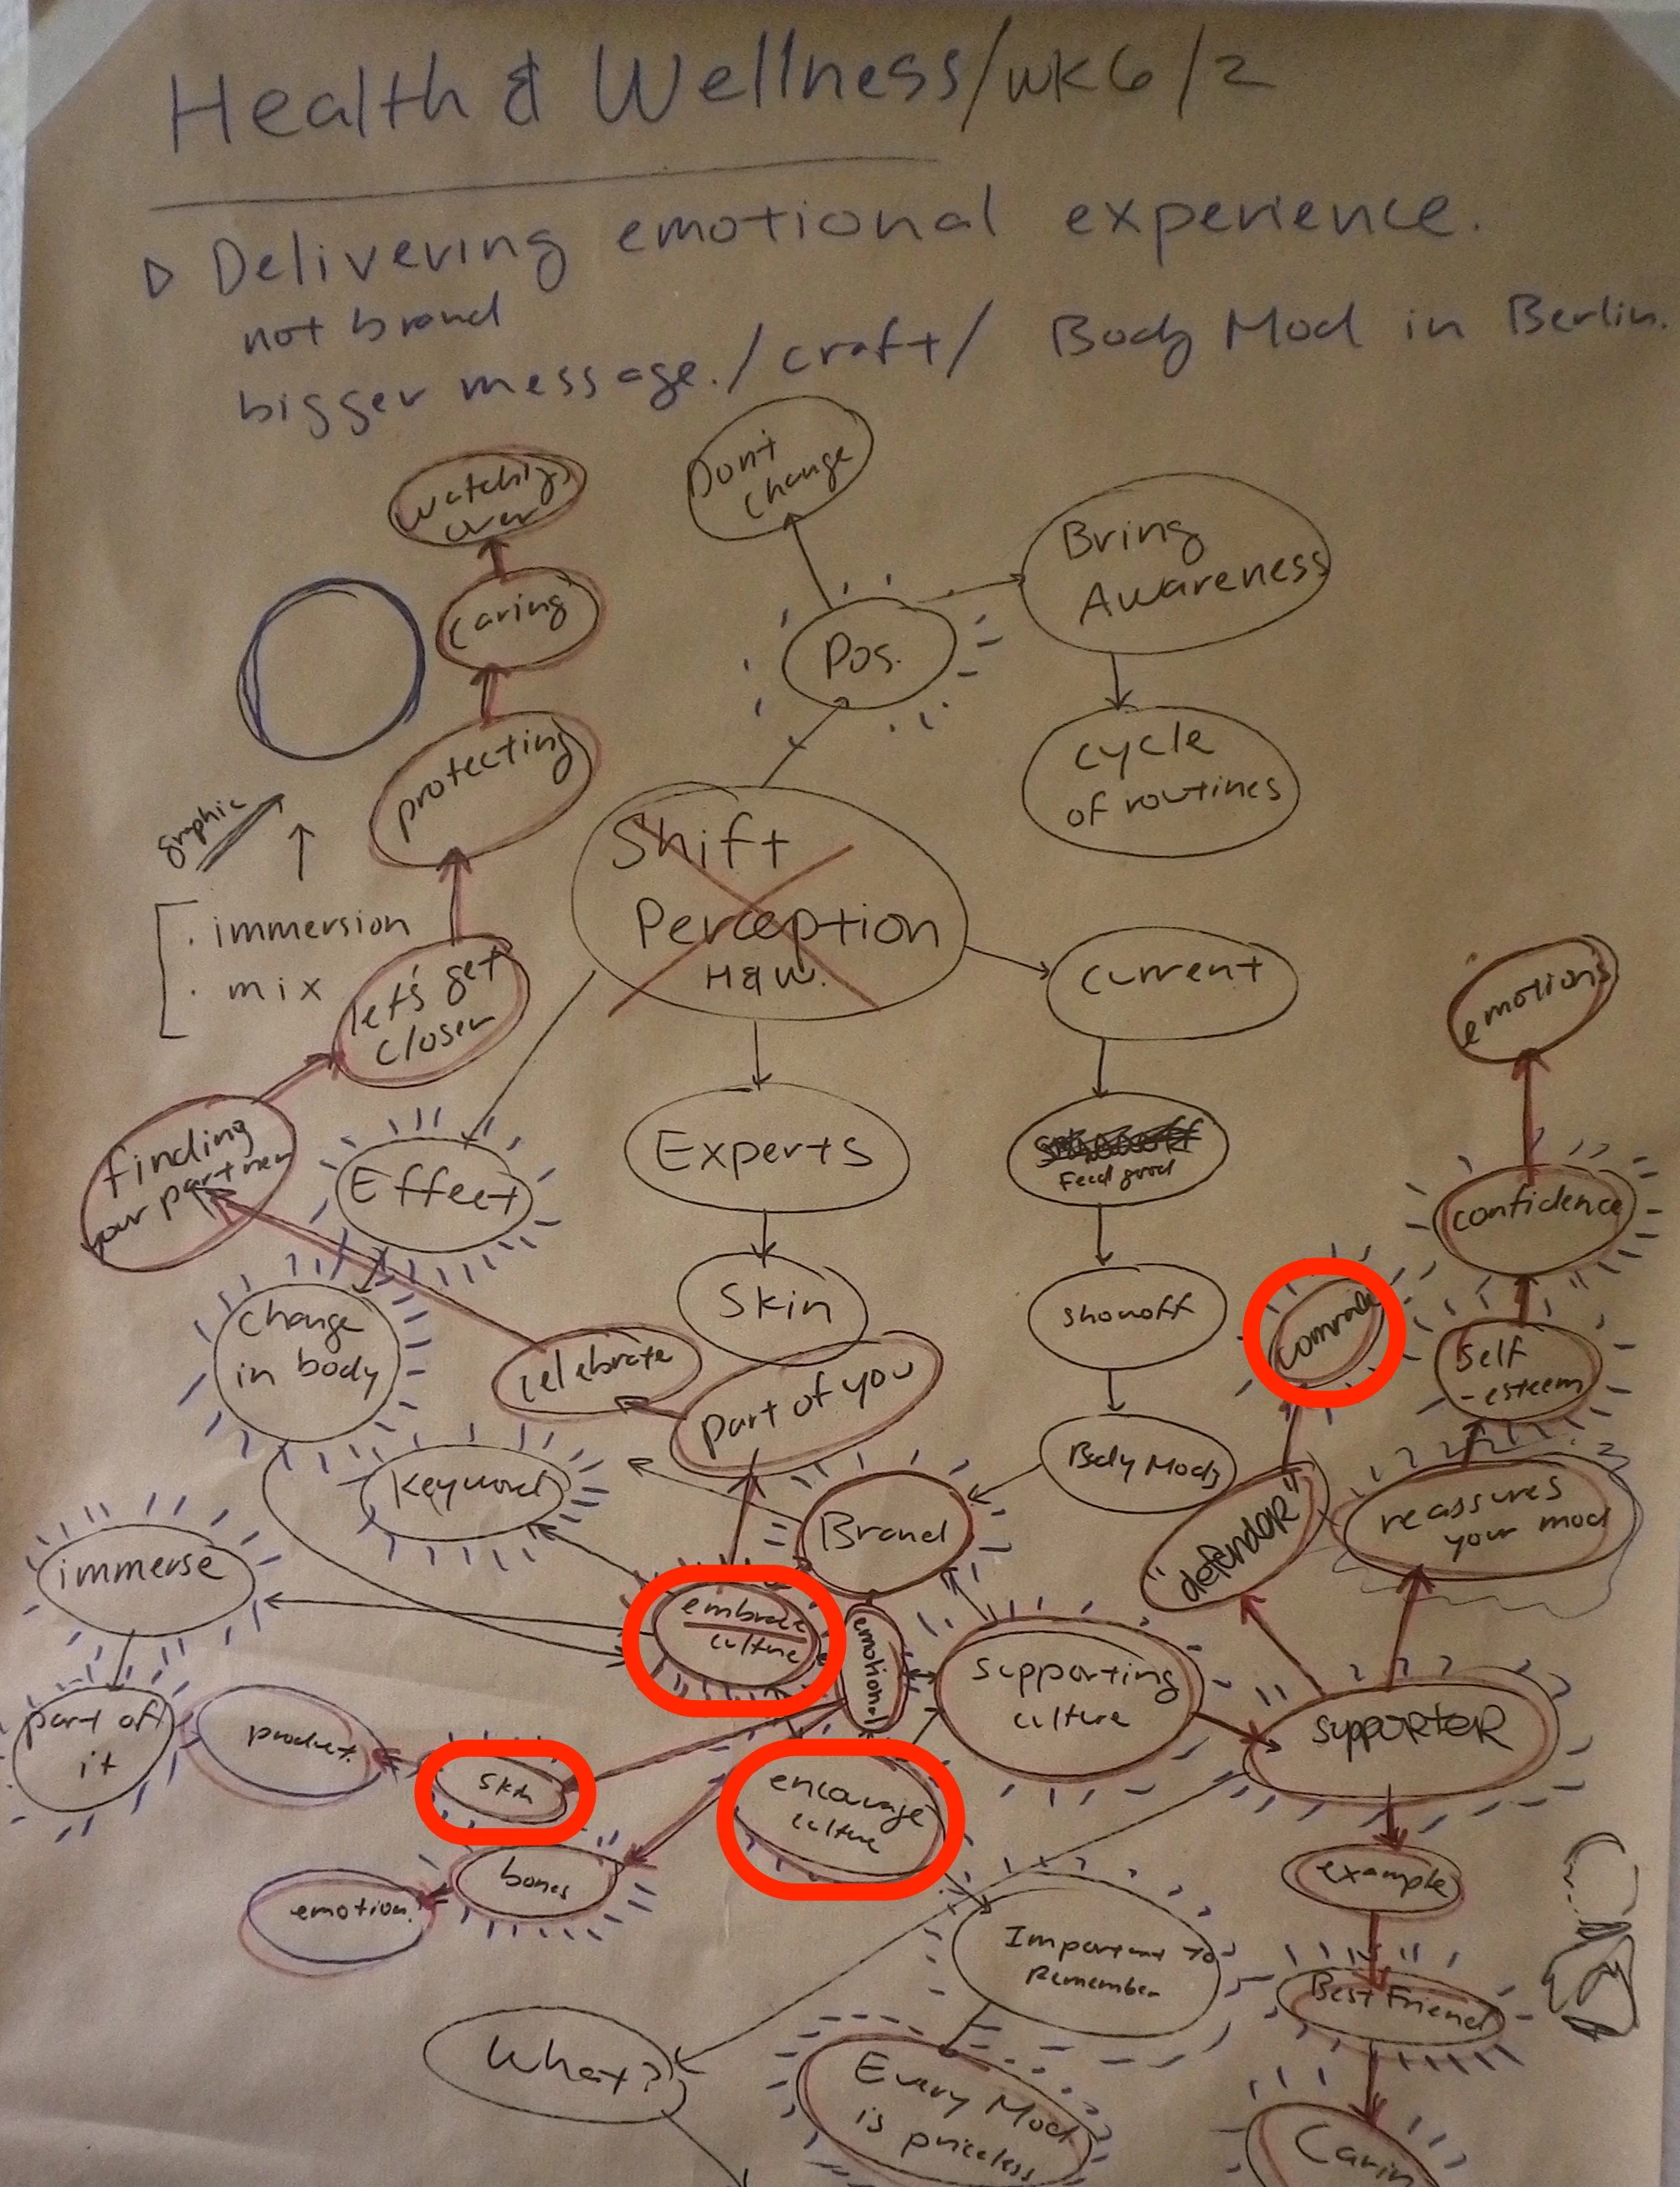 Health & Wellness/wk6/2
▷ Delivering emotional experience.
not brand
bigger message./craft/ Body Mod in Berlin.
watching
over
Don't
change
Bring
Awareness
caring
Pos.
protecting
cycle
of routines
graphic
Shift
Perception
H&W.
. immersion
. mix
let's get
closer
current
emotions
finding
your partner
Effect
Experts
Feed good
confidence
change
in body
Skin
showoff
comrade
Self
-esteem
celebrate
part of you
keyword
Body Mods
Brand
"defendoR"
reassures
your mod
immerse
embrace
culture
emotional
supporting
culture
suppoRteR
part of
it
product.
skin
encourage
culture
bones
emotion.
example
Important to
Remember
Best Friend
What?
Every Mod
is priceless
Carin